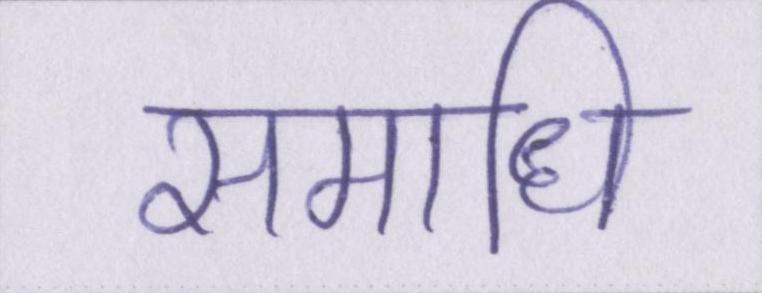 समाधि